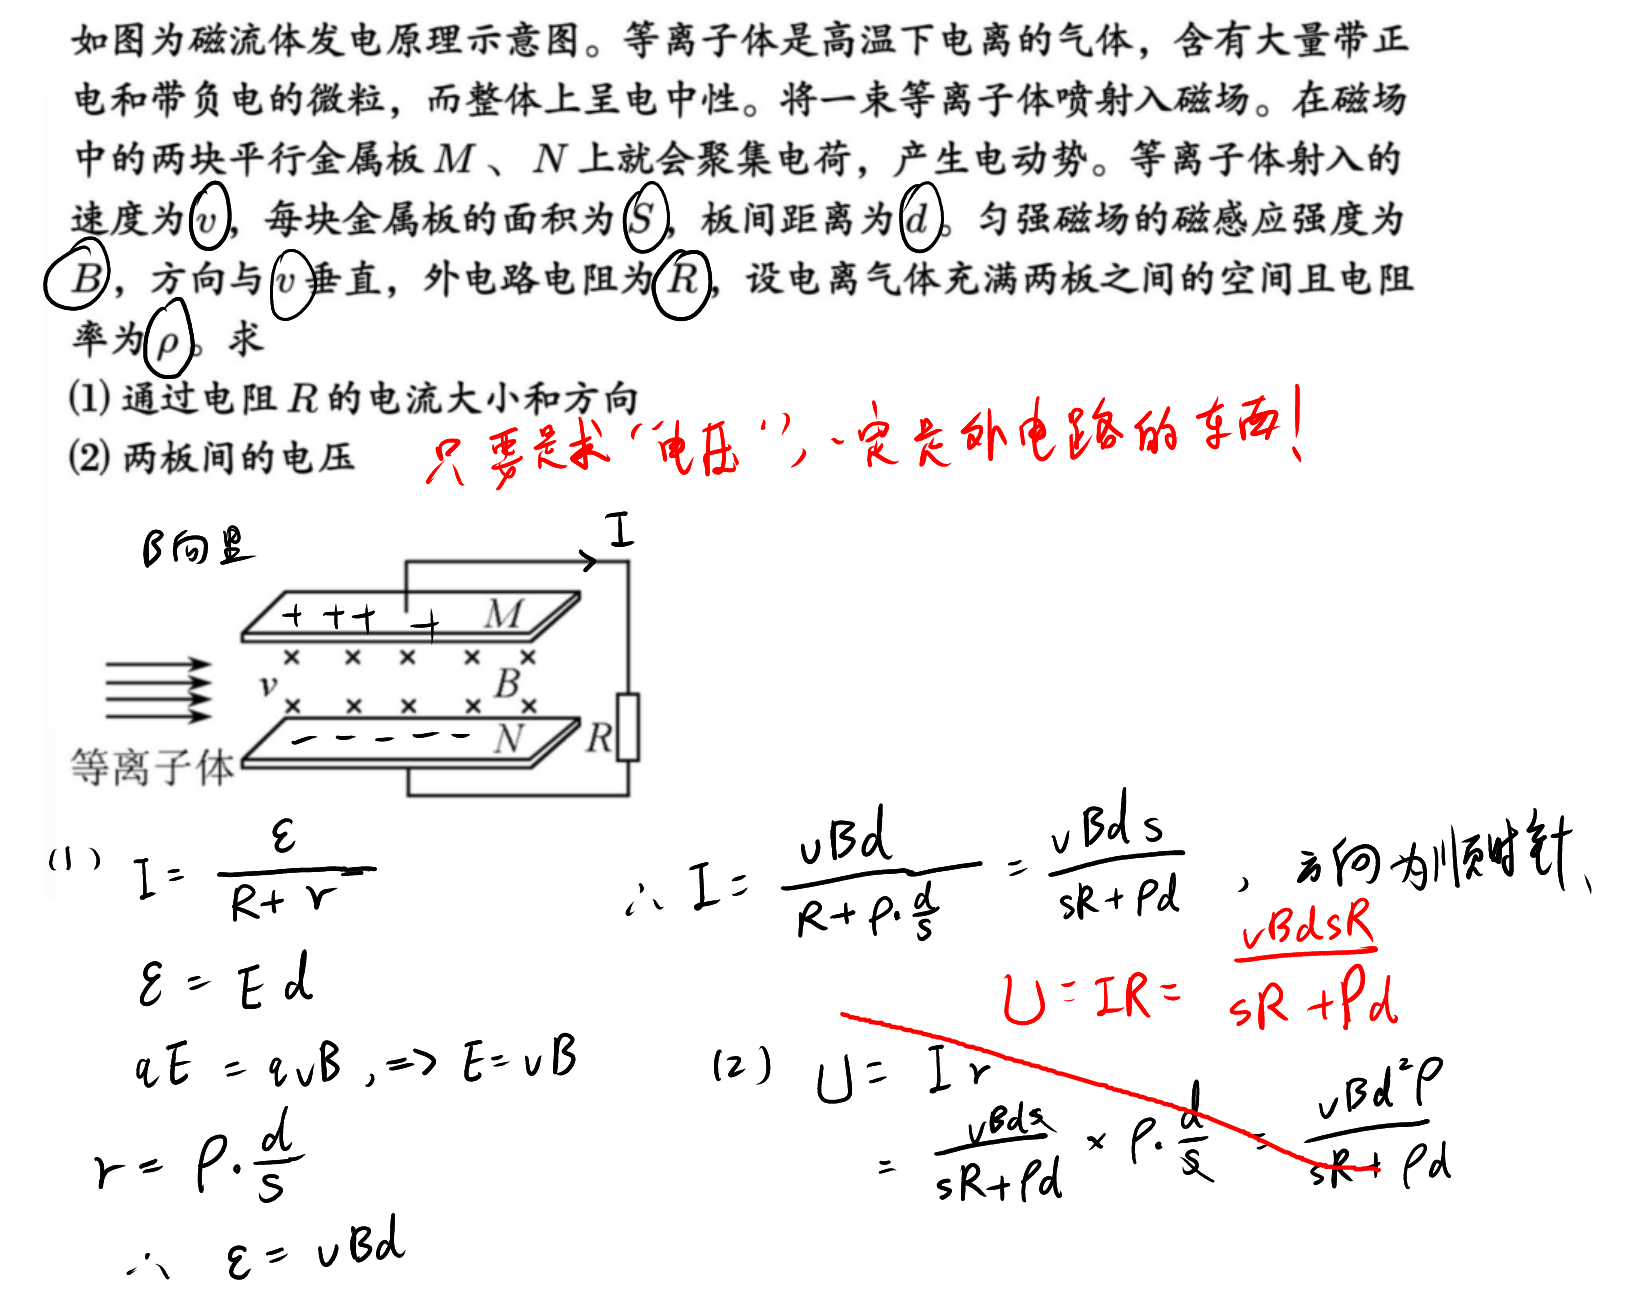 如图为磁流体发电原理示意图。等离子体是高温下电离的气体，含有大量带正
电和带负电的微粒，而整体上呈电中性。将一束等离子体喷射入磁场。在磁场
中的两块平行金属板 M 、 N 上就会聚集电荷，产生电动势。等离子体射入的
速度为 v，每块金属板的面积为 S，板间距离为 d。匀强磁场的磁感应强度为
B，方向与 v 垂直，外电路电阻为 R，设电离气体充满两板之间的空间且电阻
率为 ρ。求
(1) 通过电阻 R 的电流大小和方向
(2) 两板间的电压
只要是求“电压”，一定是外电路的东西！
B向里
I
+ + + + M
× × × × ×
v B
× × × × ×
- - - - - N
R
等离子体
(1) I = ε/(R+r)
ε = Ed
qE = qvB, => E=vB
r = ρ·d/s
∴ ε = vBd
∴ I = vBd/(R+ρ·d/s) = vBds/(sR+ρd) , 方向为顺时针、
U=IR= vBdsR/(sR+ρd)
(2) U = Ir
= vBds/(sR+ρd) × ρ·d/s = vBd²ρ/(sR+ρd)